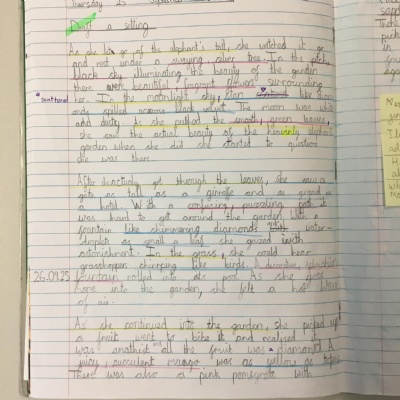 Thursday 25
Draft a setting
As she let go of the elephant's tail, she watched it go
and rest under a swaying, silver tree. In the pitch
black sky illuminating the beauty of the garden
there were beautiful fragrant flowers surrounding
scattered
her. In the moonlight sky, stars scattered like diam-
onds spilled across black velvet. The moon was white
and dusty. As she pushed the smooth, green leaves,
she saw the actual beauty of the heavenly, elephant
garden when she did she started to question
she was there.
After actually get through the leaves, she saw a
gate as tall as a giraffe and as grand as
a hotel. With a confusing, puzzling path it
was hard to get around the garden. With a
fountain like shimmering diamonds with water-
droplets as small a leaf she gazed with
astonishment. In the grass, she could hear
grasshopper chirping like birds. A decorative,
26.09.25
fountain rolled into its pool. As she goes
more into the garden, she felt a hot
of air.
As she continued into the garden, she picked up
a fruit went to bite it and realised it
was all the fruit was diamond. A
juicy, succulent mango was as yellow as
There was also a pink pomegrate with